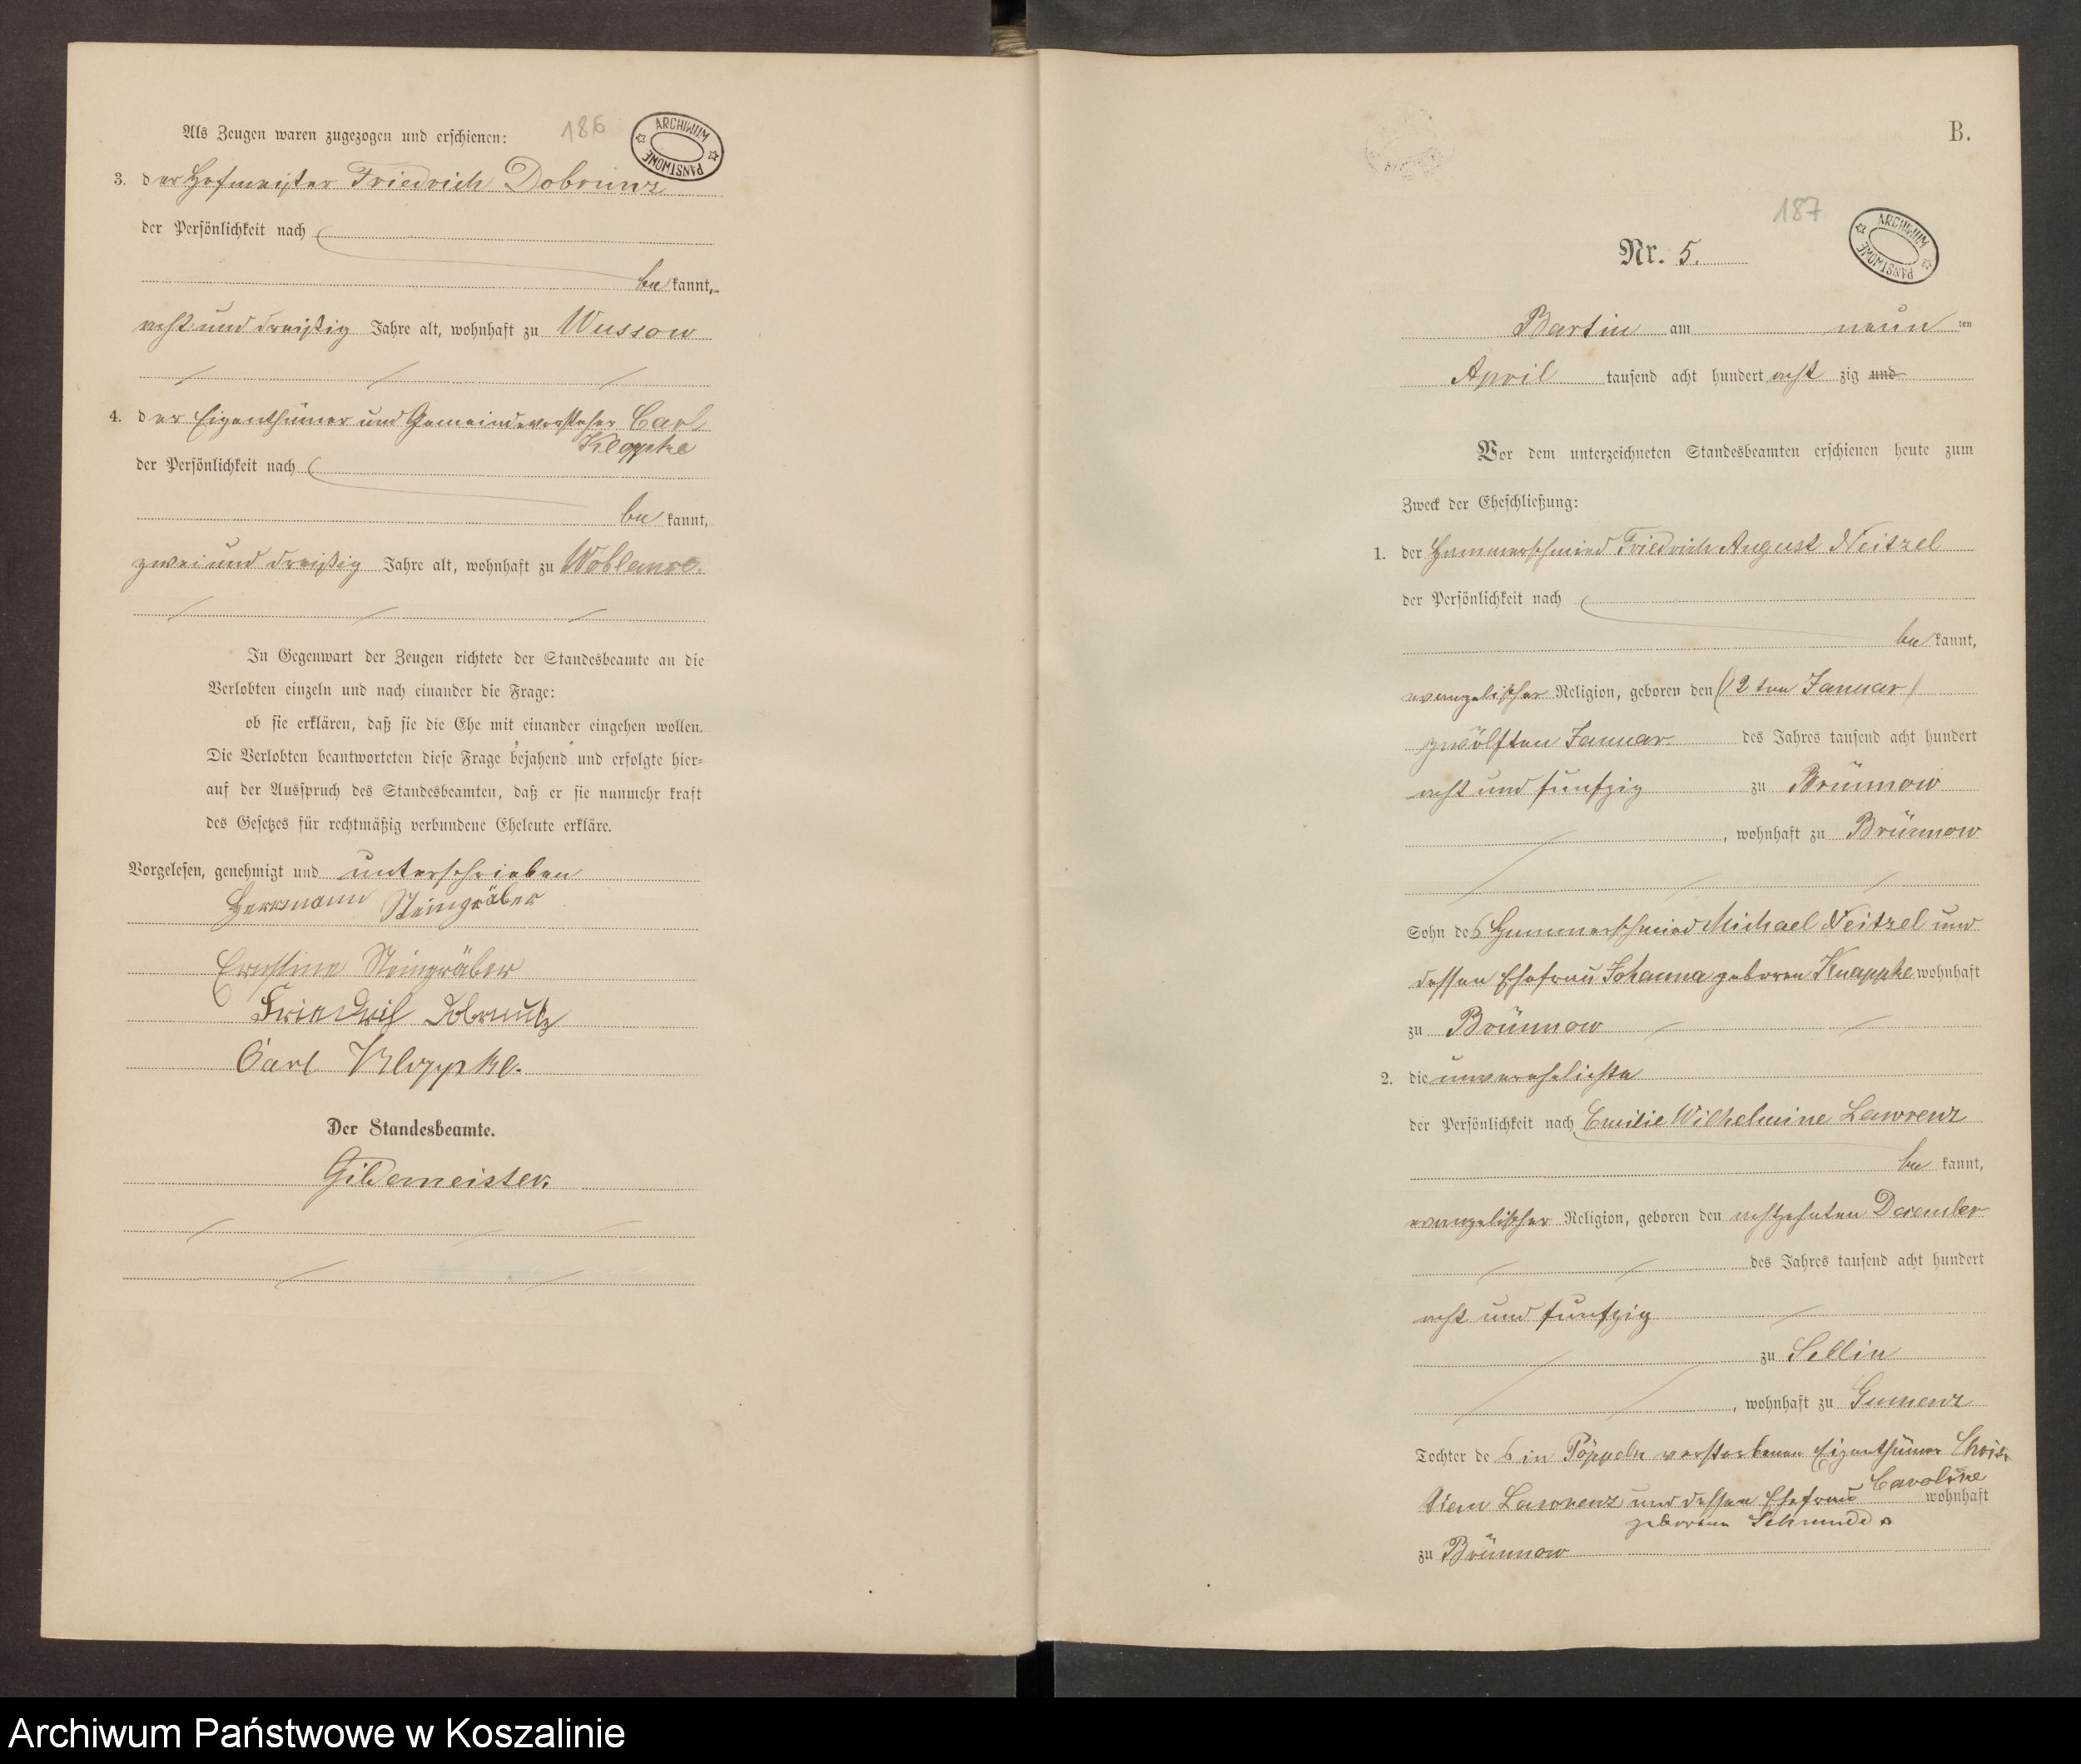 Als Zeugen waren zugezogen und erschienen:
186
ARCHIWUM PAŃSTWOWE
3. der Hofmeister Friedrich Dobrunz
der Persönlichkeit nach
be kannt,
acht und dreißig Jahre alt, wohnhaft zu Wussow
4. der Eigenthümer und Gemeindevorsteher Carl
Kloppke
der Persönlichkeit nach
be kannt,
zwei und dreißig Jahre alt, wohnhaft zu Woblanse.
In Gegenwart der Zeugen richtete der Standesbeamte an die
Verlobten einzeln und nach einander die Frage:
ob sie erklären, daß sie die Ehe mit einander eingehen wollen.
Die Verlobten beantworteten diese Frage bejahend und erfolgte hier-
auf der Ausspruch des Standesbeamten, daß er sie nunmehr kraft
des Gesetzes für rechtmäßig verbundene Eheleute erkläre.
Vorgelesen, genehmigt und unterschrieben
Herrmann Steingräber
Ernstine Steingräber
Friedrich Dobrunz
Carl Kloppke.
Der Standesbeamte.
Gildemeister.
B.
187
ARCHIWUM PAŃSTWOWE
Nr. 5.
Bartin am neun ten
April tausend acht hundert acht zig und
Vor dem unterzeichneten Standesbeamten erschienen heute zum
Zweck der Eheschließung:
1. der Hammerschmied Friedrich August Neitzel
der Persönlichkeit nach
be kannt,
evangelischer Religion, geboren den (12 ten Januar)
zwölften Januar des Jahres tausend acht hundert
acht und fünfzig zu Brünnow
, wohnhaft zu Brünnow
Sohn des Hammerschmied Michael Neitzel und
dessen Ehefrau Johanna geboren Knappke wohnhaft
zu Brünnow
2. die unverehelichte
der Persönlichkeit nach Emilie Wilhelmine Lawrenz
be kannt,
evangelischer Religion, geboren den achtzehnten December
des Jahres tausend acht hundert
acht und fünfzig
zu Sellin
, wohnhaft zu Gumenz
Tochter des in Pöppeln verstorbenen Eigenthümer Chris-
tian Lawrenz und dessen Ehefrau Caroline wohnhaft
geborene Schmude
zu Brünnow
Archiwum Państwowe w Koszalinie